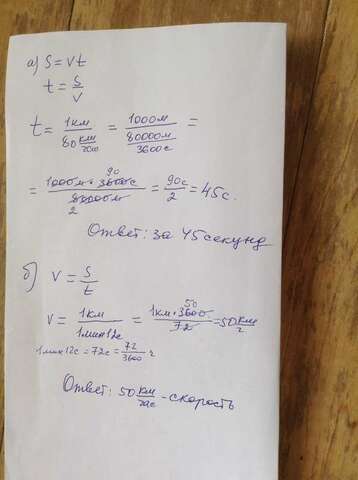 а) S = Vt
t = S/V
t = 1км / 80 км/час = 1000м / (80000м / 3600с) =
= 1000м · 3600с 90 / 80000м 2 = 90с / 2 = 45с.
Ответ: за 45 секунд
б) V = S/t
V = 1км / 1мин12с = 1км · 3600 50 / 72 = 50 км/ч
1мин12с = 72с = 72/3600 ч
Ответ: 50 км/час - скорость